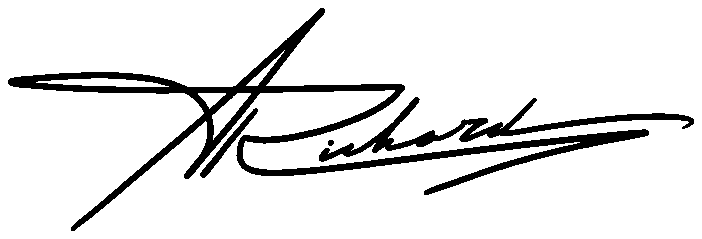 A Richard